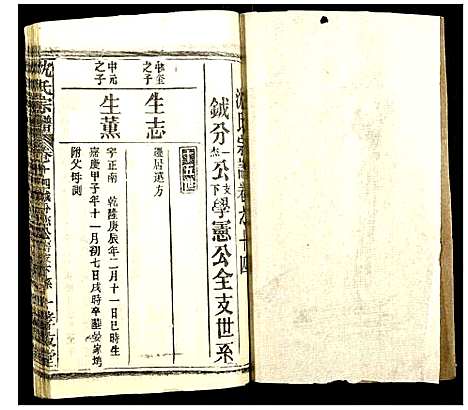 沈氏宗譜卷之十四
鉞分一公支下學憲公全支世系
十五世
中奎之子
生志
遷居遠方
中元之子
生薰
字正南 乾隆庚辰年二月十一日巳時生
嘉慶甲子年十一月初七日戌時卒墓晏家塆
附父母側
沈氏宗譜